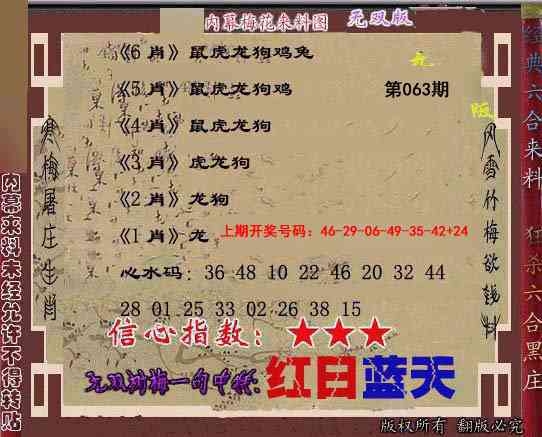 内幕梅花来料图 无双版
《6 肖》鼠虎龙狗鸡兔
《5 肖》鼠虎龙狗鸡
第063期
《4 肖》鼠虎龙狗
《3 肖》虎龙狗
《2 肖》龙狗
《1 肖》龙
上期开奖号码：46-29-06-49-35-42+24
心水码： 36 48 10 22 46 20 32 44
28 01 25 33 02 26 38 15
信心指数：★★★
无双浏梅一句中特:红日蓝天
版权所有 翻版必究
寒梅屠庄生肖
风雪竹梅欲钱料
内幕来料未经允许不得转贴
经典六合来料 狂杀六合黑庄
无
版